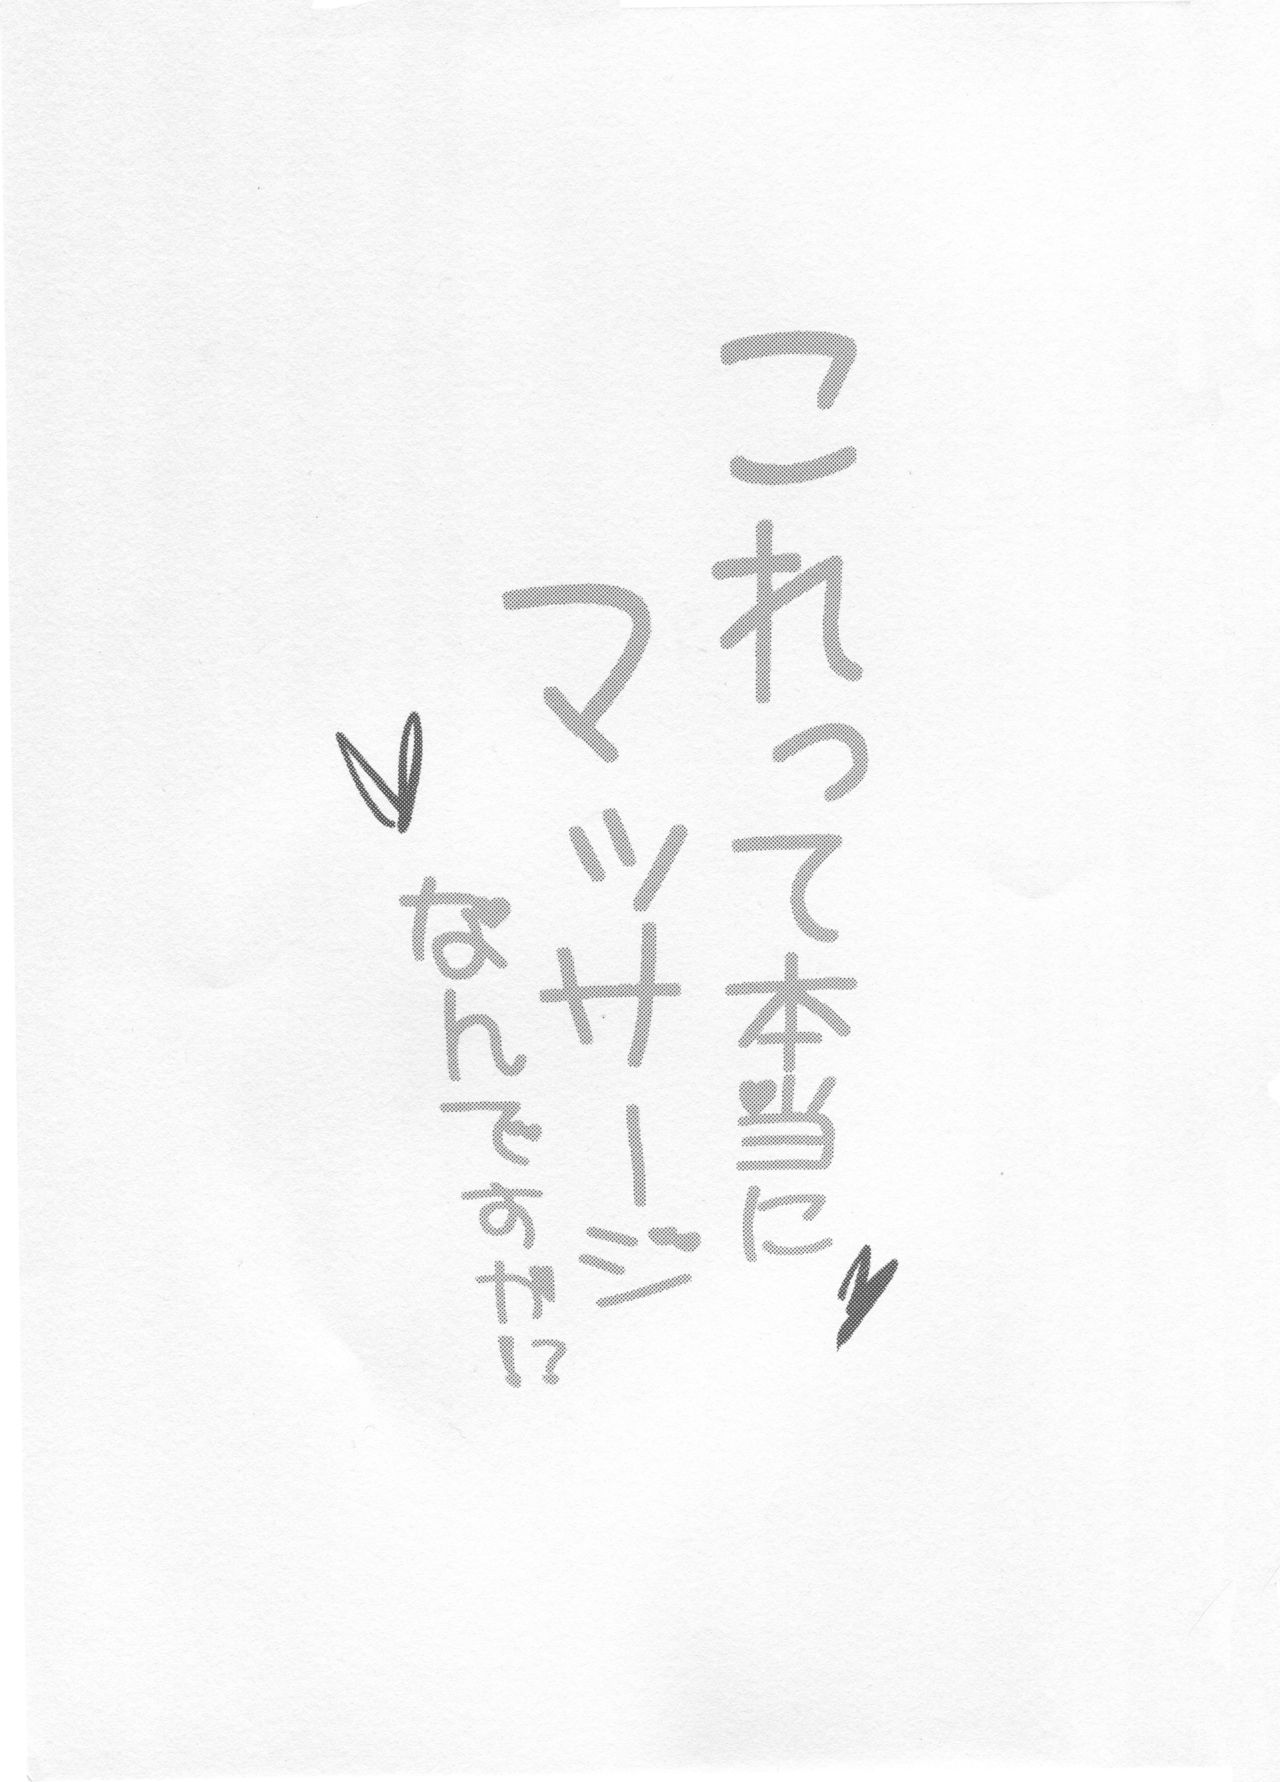 これって本当に
マッサージ
なんですが!?